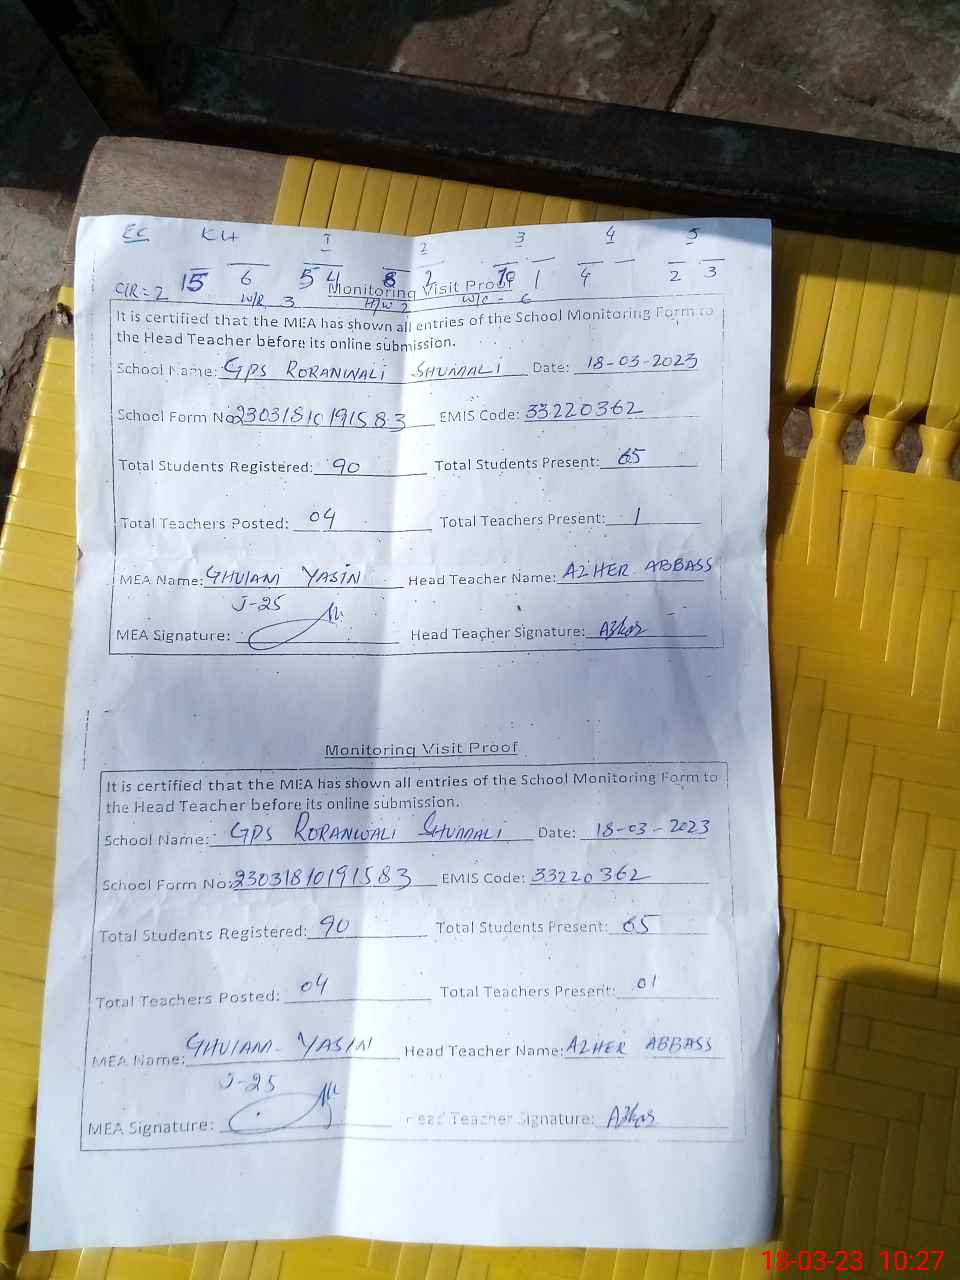 EC KH 1 2 3 4 5
15 6 5 4 8 2 10 1 4 2 3
CIR=2 W/R 3 H/W 2 W/C - 6
Monitoring Visit Proof
It is certified that the MEA has shown all entries of the School Monitoring Form to
the Head Teacher before its online submission.
School Name: GPS RORANWALI SHUMALI Date: 18-03-2023
School Form No: 23031810191583 EMIS Code: 33220362
Total Students Registered: 90 Total Students Present: 65
Total Teachers Posted: 04 Total Teachers Present: 1
MEA Name: GHULAM YASIN Head Teacher Name: AZHER ABBASS
J-25
MEA Signature: Head Teacher Signature: Azhar
Monitoring Visit Proof
It is certified that the MEA has shown all entries of the School Monitoring Form to
the Head Teacher before its online submission.
School Name: GPS RORANWALI SHUMALI Date: 18-03-2023
School Form No: 23031810191583 EMIS Code: 33220362
Total Students Registered: 90 Total Students Present: 65
Total Teachers Posted: 04 Total Teachers Present: 01
MEA Name: GHULAM YASIN Head Teacher Name: AZHER ABBASS
J-25
MEA Signature: Head Teacher Signature: Azhar
18-03-23 10:27